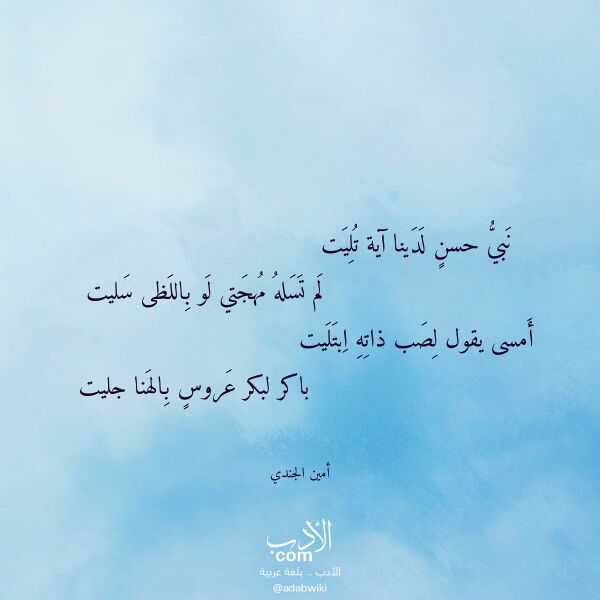 نَبيُّ حسنٍ لَدَينا آية تُلِيَت
لَم تَسَلهُ مُهجَتي لَو بِاللَظى سَليت
أَمسى يقول لِصَب ذاتِهِ اِبتَلَيت
باكر لبكر عَروسٍ بِالهَنا جليت
أمين الجندي
الأدب
com
الأدب .. بلغة عربية
@adabwiki